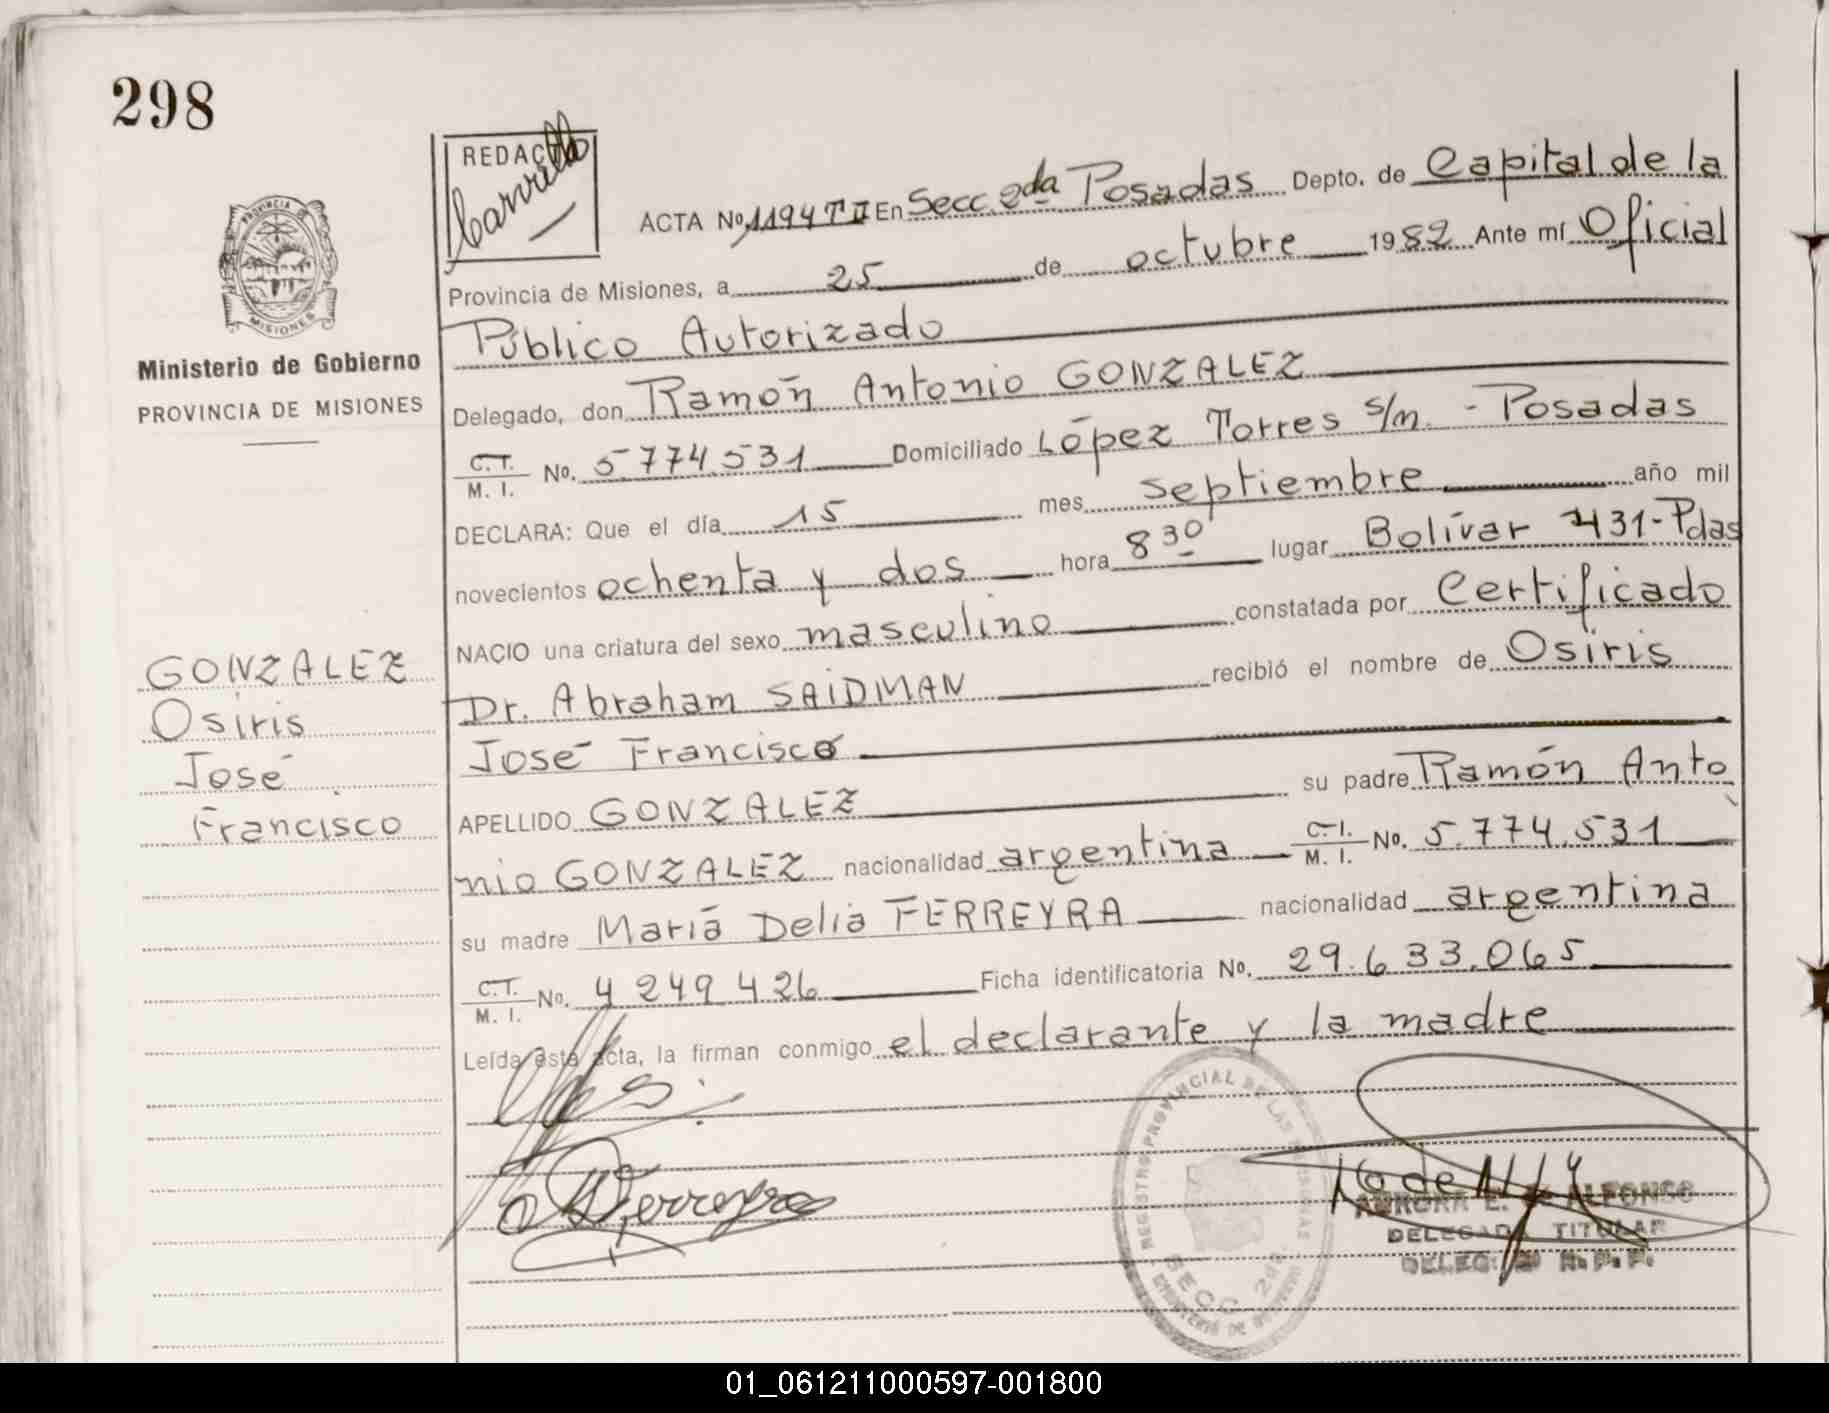 298
REDACTO
Carvallo
ACTA No. 1194 T II En Secc. 2da Posadas Depto. de Capital de la
Provincia de Misiones, a 25 de octubre 1982 Ante mí Oficial
Público Autorizado
Delegado, don Ramón Antonio GONZALEZ
C.I. / M. I. No. 5.774.531 Domiciliado López Torres s/n. - Posadas
DECLARA: Que el día 15 mes septiembre año mil
novecientos ochenta y dos hora 8 30 lugar Bolívar 431-Pdas
NACIO una criatura del sexo masculino constatada por Certificado
Dr. Abraham SAIDMAN recibió el nombre de Osiris
José Francisco
APELLIDO GONZALEZ su padre Ramón Anto
nio GONZALEZ nacionalidad argentina C.I. / M. I. No. 5.774.531
su madre María Delia FERREYRA nacionalidad argentina
C.I. / M. I. No. 4 249 426 Ficha identificatoria No. 29.633.065
Leída esta acta, la firman conmigo el declarante y la madre
PROVINCIA DE
MISIONES
Ministerio de Gobierno
PROVINCIA DE MISIONES
GONZALEZ
Osiris
José
Francisco
Ferreyra
REGISTRO PROVINCIAL DE LAS PERSONAS
SECC. 2da.
MINISTERIO DE GOBIERNO
AURORA E. de ALFONSO
DELEGADA TITULAR
DELEG. 2 R. P. P.
01_061211000597-001800